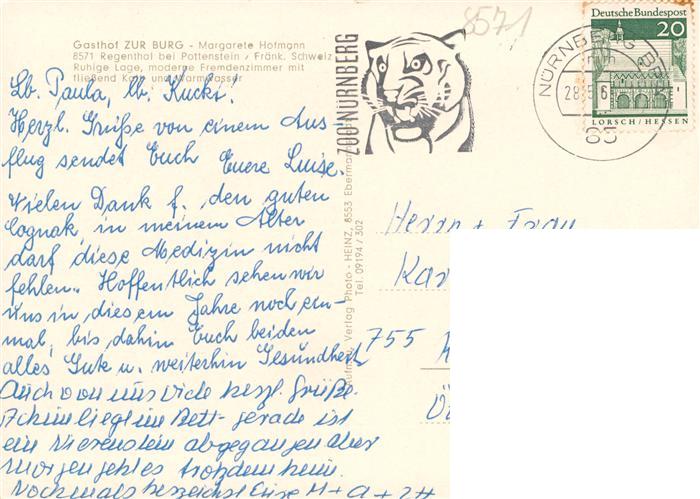 8571
Gasthof ZUR BURG - Margarete Hofmann
8571 Regenthal bei Pottenstein / Fränk. Schweiz
Ruhige Lage, moderne Fremdenzimmer mit
fließend Kalt- und Warmwasser
Lb. Paula, lb. Kucki!
Herzl. Grüße von einem Aus-
flug sendet Euch Euere Luise.
Vielen Dank f. den guten
Cognak in meinem Alter
darf diese Medizin nicht
fehlen. Hoffentlich sehen wir
uns in diesem Jahre noch ein-
mal, bis dahin Euch beiden
alles Gute u. weiterhin Gesundheit
Auch von uns viele herzl. Grüße.
liegt im Bett - gerade ist
ein Nierenstein abgegangen aber
morgen geht es trotzdem heim.
Nochmals herzlichst Eure
ZOO NÜRNBERG
NÜRNBERG
28.
6
85
Deutsche Bundespost
20
LORSCH/HESSEN
Verlag Photo-HEINZ, 8553 Eberma
Tel. 09194 / 302
Herrn + Frau
Kar
755